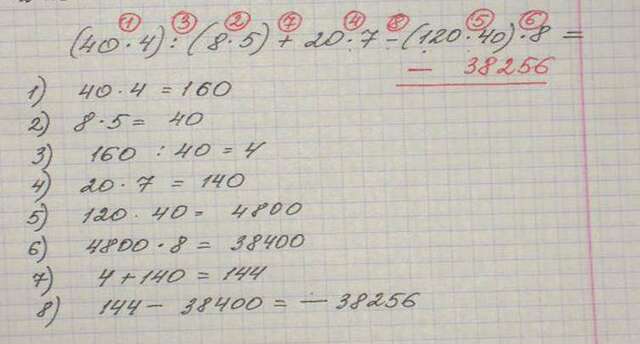 1 3 2 7 4 8 5 6
(40·4):(8·5)+20·7-(120·40)·8=
- 38256
1) 40·4=160
2) 8·5= 40
3) 160 : 40=4
4) 20·7 = 140
5) 120·40= 4800
6) 4800·8= 38400
7) 4+140=144
8) 144- 38400=-38256